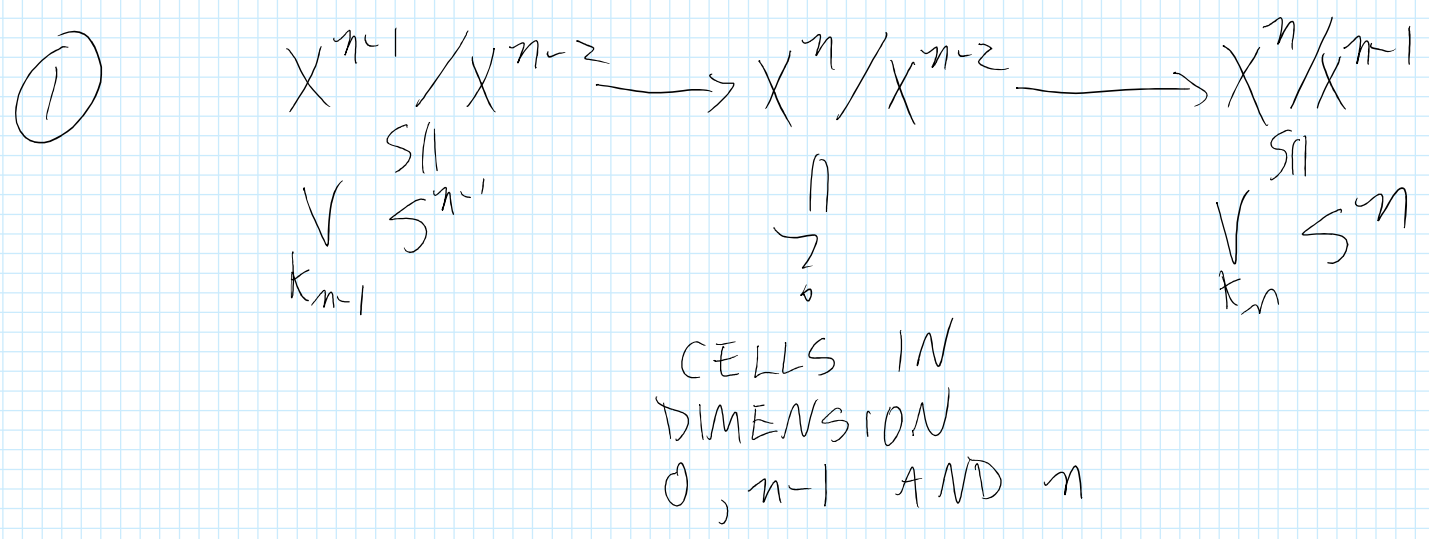 ① X^{n-1}/X^{n-2} → X^n/X^{n-2} → X^n/X^{n-1}
S|| S||
V S^{n-1} V S^n
k_{n-1} k_n
CELLS IN
DIMENSION
0, n-1 AND n